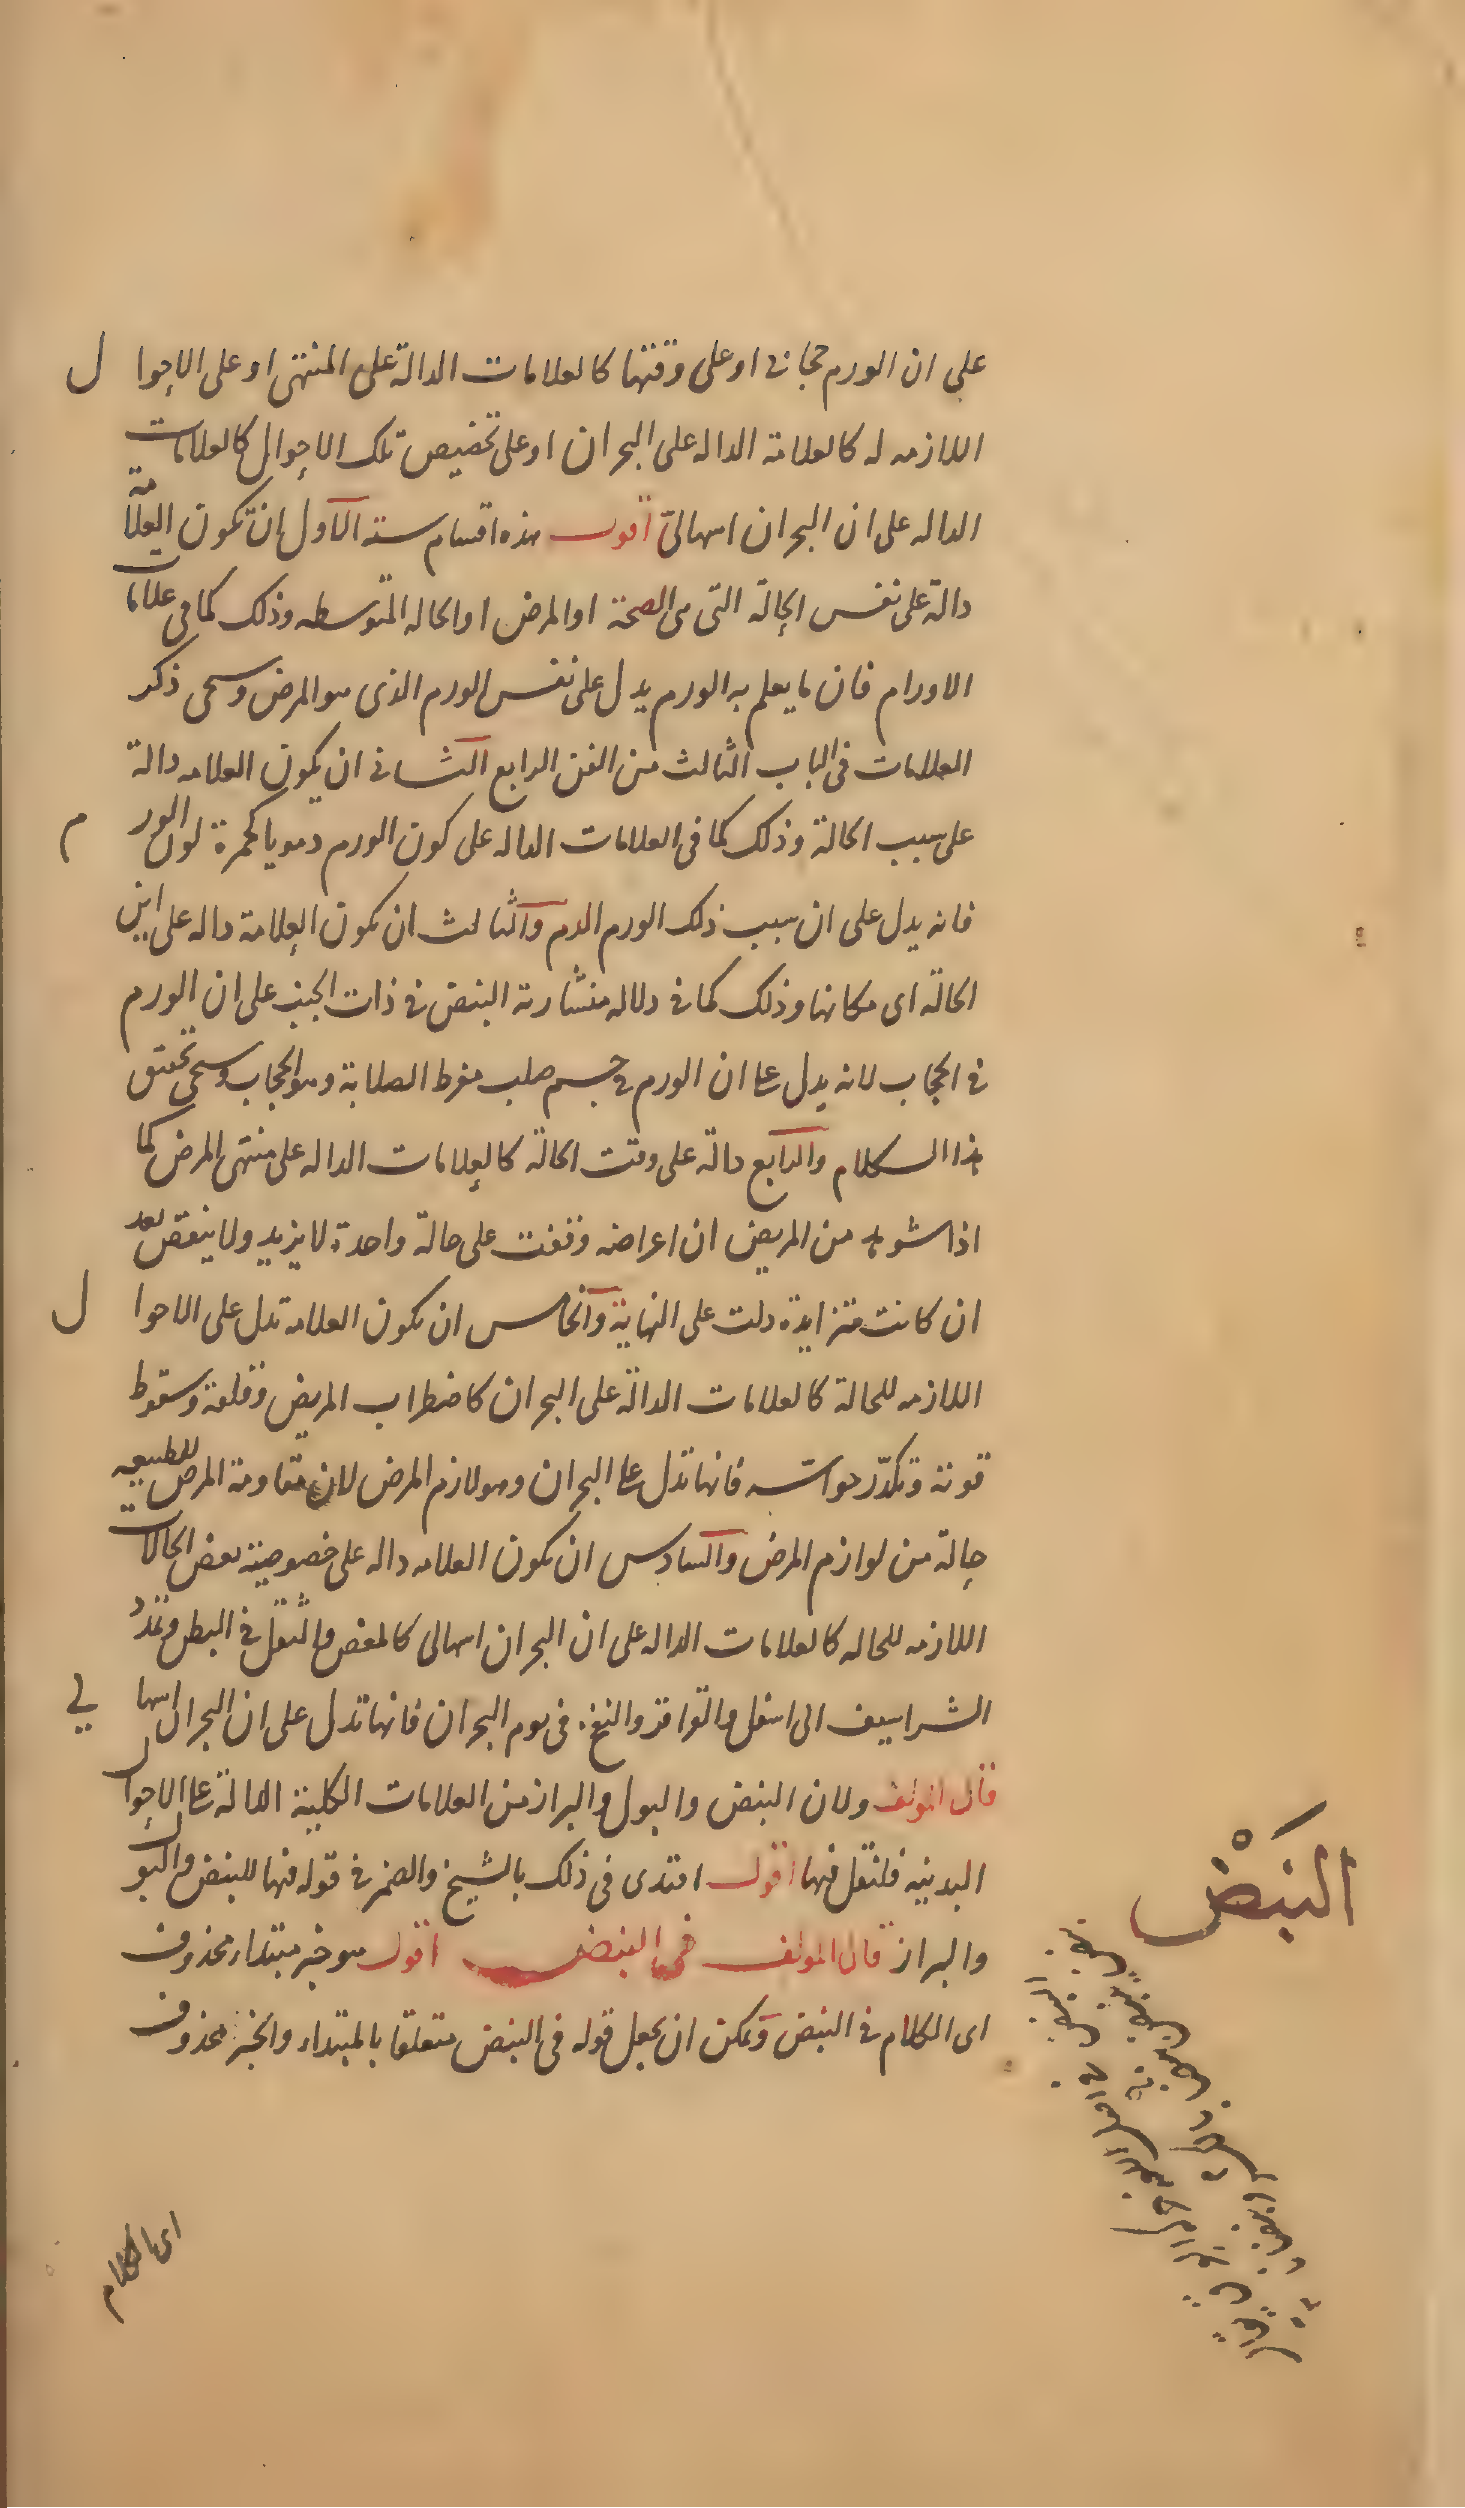 على ان الورم حجابي او على وقتها كالعلامات الدالة على المنتهى او على الاحوال
اللازمه له كالعلامة الداله على البحران او على تخصيص تلك الاحوال كالعلامات
الداله على ان البحران اسهالىّ اقول هذه اقسام ستة الاول ان تكون العلامة
دالة على نفس الحالة التى هى الصحة او المرض او الحاله المتوسطه وذلك كما فى علامات
الاورام فان ما يعلم به الورم يدل على نفس الورم الذى هو المرض وسيجى ذكر
العلامات فى الباب الثالث من الفن الرابع الثانى ان يكون العلامه دالة
على سبب الحالة وذلك كما فى العلامات الداله على كون الورم دمويا كحمرة لون الورم
فانه يدل على ان سبب ذلك الورم الدم والثالث ان يكون العلامة داله على اين
الحالة اى مكانها وذلك كما فى دلاله منشارية النبض فى ذات الجنب على ان الورم
فى الحجاب لانه يدل على ان الورم فى جسم صلب مفرط الصلابة وهو الحجاب وسيجى تحقيق
هذا الكلام والرابع دالة على وقت الحالة كالعلامات الداله على منتهى المرض كما
اذا شوهد من المريض ان اعراضه وقفت على حالة واحدة لا يزيد ولا ينقص بعد
ان كانت متزايدة دلت على النهاية والخامس ان يكون العلامة تدل على الاحوال
اللازمه للحالة كالعلامات الدالة على البحران كاضطراب المريض وقلقة وسقوط
قوته وتكدّر حواسه فانها تدل على البحران وهو لازم المرض لان مقاومة المرض للطبيعه
حالة من لوازم المرض والسادس ان يكون العلامه داله على خصوصية بعض الحالات
اللازمه للحاله كالعلامات الداله على ان البحران اسهالى كالمغص والثقل فى البطن وتمدد
الشراسيف الى اسفل والقراقر والنفخ فى يوم البحران فانها تدل على ان البحران اسهالي
قال المولف ولان النبض والبول والبراز من العلامات الكلية الدالة على الاحوال
البدنيه فلنقل فيها اقول اقتدى فى ذلك بالشيخ والضمير فى قوله فيها للنبض والبول
والبراز قال المولف فى النبض اقول هو خبر مبتداء محذوف
اى الكلام فى النبض ويمكن ان يجعل قوله فى النبض متعلقا بالمبتداء والخبر محذوف
النَبَضْ
اى الكلام